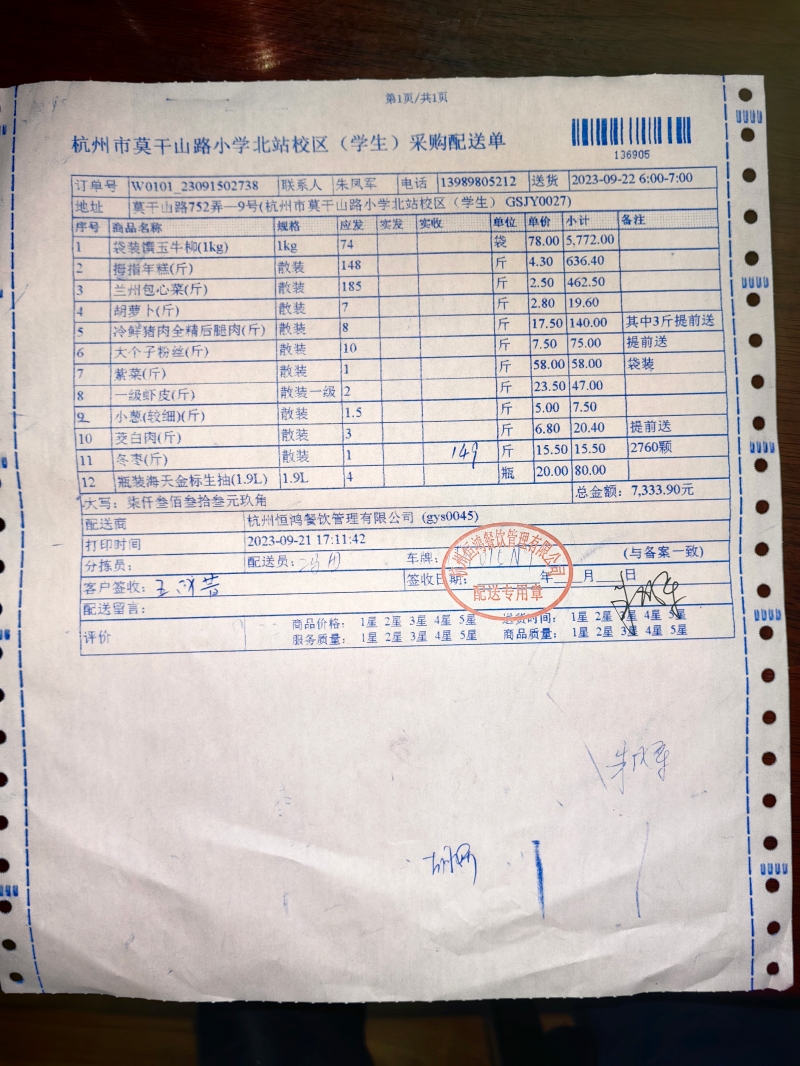 第1页/共1页
杭州市莫干山路小学北站校区（学生）采购配送单
136905
订单号 W0101_23091502738 联系人 朱凤军 电话 13989805212 送货 2023-09-22 6:00-7:00
地址 莫干山路752弄—9号(杭州市莫干山路小学北站校区（学生） GSJY0027)
序号 商品名称 规格 应发 实发 实收 单位 单价 小计 备注
1 袋装馔玉牛柳(1kg) 1kg 74 袋 78.00 5,772.00
2 拇指年糕(斤) 散装 148 斤 4.30 636.40
3 兰州包心菜(斤) 散装 185 斤 2.50 462.50
4 胡萝卜(斤) 散装 7 斤 2.80 19.60
5 冷鲜猪肉全精后腿肉(斤) 散装 8 斤 17.50 140.00 其中3斤提前送
6 大个子粉丝(斤) 散装 10 斤 7.50 75.00 提前送
7 紫菜(斤) 散装 1 斤 58.00 58.00 袋装
8 一级虾皮(斤) 散装一级 2 斤 23.50 47.00
9 小葱(较细)(斤) 散装 1.5 斤 5.00 7.50
10 茭白肉(斤) 散装 3 斤 6.80 20.40 提前送
11 冬枣(斤) 散装 1 149 斤 15.50 15.50 2760颗
12 瓶装海天金标生抽(1.9L) 1.9L 4 瓶 20.00 80.00
大写：柒仟叁佰叁拾叁元玖角 总金额：7,333.90元
配送商 杭州恒鸿餐饮管理有限公司 (gys0045)
打印时间 2023-09-21 17:11:42
分拣员： 配送员： 车牌： (与备案一致)
客户签收： 签收日期： 年 月 日
杭州恒鸿餐饮管理有限公司
配送专用章
配送留言：
评价 商品价格： 1星 2星 3星 4星 5星 送货时间： 1星 2星 3星 4星 5星
服务质量： 1星 2星 3星 4星 5星 商品质量： 1星 2星 3星 4星 5星
朱凤军